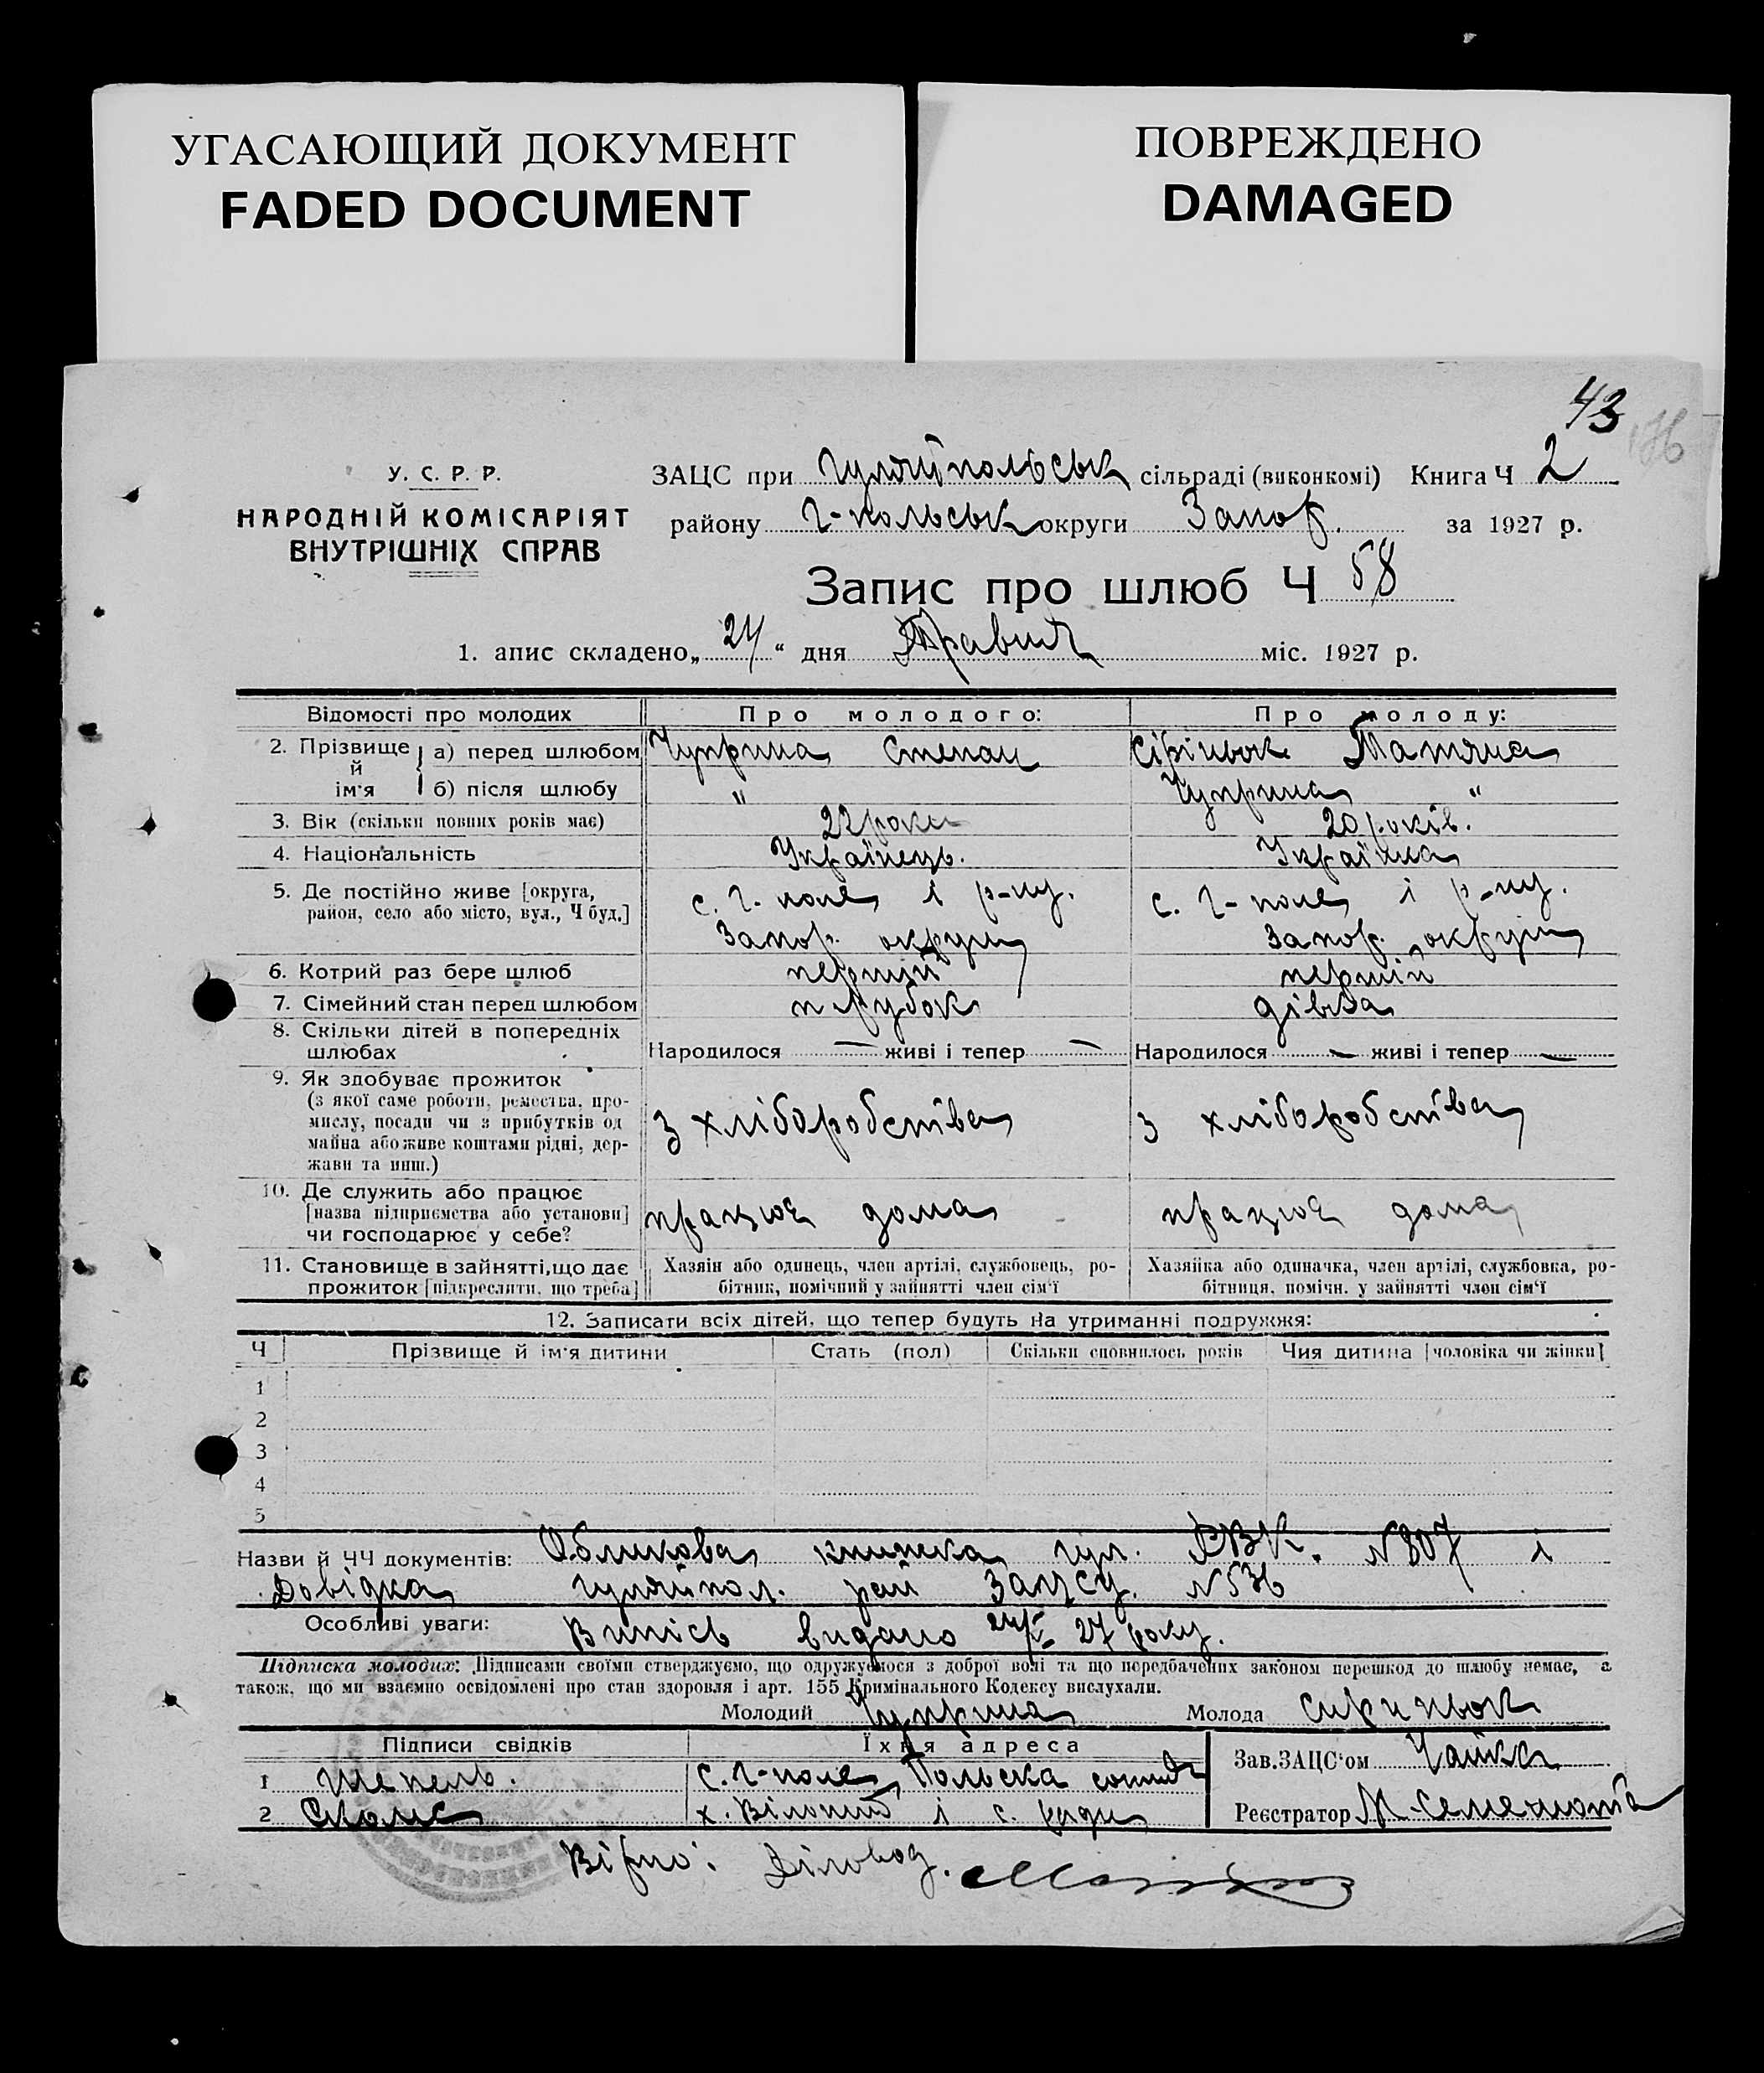 УГАСАЮЩИЙ ДОКУМЕНТ
FADED DOCUMENT
ПОВРЕЖДЕНО
DAMAGED
43
У. С. Р. Р.
НАРОДНІЙ КОМІСАРІЯТ
ВНУТРІШНІХ СПРАВ
ЗАЦС при Гуляйпольськ сільраді (виконкомі) Книга Ч 2
району Г-польськ округи Запор. за 1927 р.
Запис про шлюб Ч 58
1. апис складено „24“ дня Травня міс. 1927 р.
Відомості про молодих Про молодого: Про молоду:
2. Прізвище й ім'я а) перед шлюбом Чуприна Степан Сіріньок Матяна
б) після шлюбу " Чуприна "
3. Вік (скільки повних років має) 22 роки 20 років.
4. Національність Українець. Українка
5. Де постійно живе [округа, район, село або місто, вул., Ч буд.] с. Г-поле і р-ну. Запор. округи с. Г-поле і р-ну. Запор. округи
6. Котрий раз бере шлюб перший перший
7. Сімейний стан перед шлюбом парубок дівка
8. Скільки дітей в попередніх шлюбах Народилося — живі і тепер — Народилося — живі і тепер —
9. Як здобуває прожиток (з якої саме роботи, ремества, промислу, посади чи з прибутків од майна або живе коштами рідні, держави та инш.) З хліборобства з хліборобства
10. Де служить або працює [назва підприємства або установи] чи господарює у себе? працює дома працює дома
11. Становище в зайнятті, що дає прожиток [підкреслити, що треба] Хазяїн або одинець, член артілі, службовець, робітник, помічний у зайнятті член сім'ї Хазяйка або одиначка, член артілі, службовка, робітниця, помічн. у зайнятті член сім'ї
12. Записати всіх дітей, що тепер будуть на утриманні подружжя:
Ч Прізвище й ім'я дитини Стать (пол) Скільки сповнилось років Чия дитина [чоловіка чи жінки]
1
2
3
4
5
Назви й ЧЧ документів: Обликова книжка гул. РВК. №807 і
Довідка гуляйпол. рай Загсу. №536
Особливі уваги: Випісь видано 24/V 27 року.
Підписка молодих: Підписами своїми стверджуємо, що одружуємося з доброї волі та що передбачених законом перешкод до шлюбу немає, а
також, що ми взаємно освідомлені про стан здоровля і арт. 155 Кримінального Кодексу вислухали.
Молодий Чуприна Молода Сириньок
Підписи свідків Їхня адреса Зав. ЗАЦС'ом Чайка
1 Шепель. с. Г-поле, Польска сотня
2 х. Вільний і с. ради Реєстратор
Вірно: Діловод.